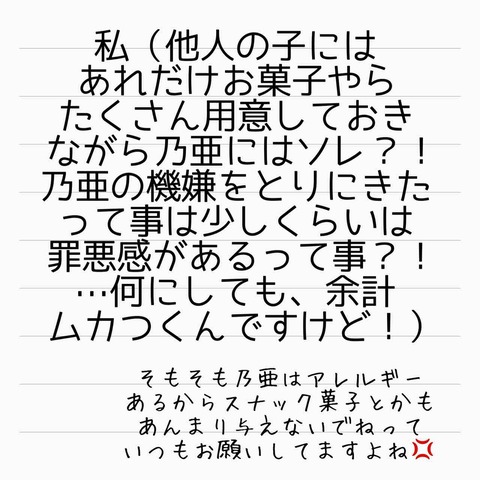 私（他人の子には
あれだけお菓子やら
たくさん用意しておき
ながら乃亜にはソレ？！
乃亜の機嫌をとりにきた
って事は少しくらいは
罪悪感があるって事？！
…何にしても、余計
ムカつくんですけど！）
そもそも乃亜はアレルギー
あるからスナック菓子とかも
あんまり与えないでねって
いつもお願いしてますよね💢